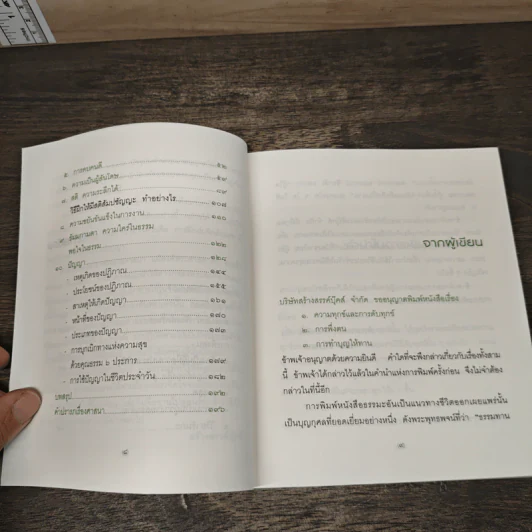 ๕. การคบคนดี ๕๒
๖. ความเป็นผู้สันโดษ ๕๙
๗. สติ ความระลึกได้ ๘๙
วิธีฝึกให้มีสติสัมปชัญญะ ทำอย่างไร ๑๐๘
๘. ความขยันขันแข็งในการงาน ๑๑๐
๙. ธัมมกามตา ความใคร่ในธรรม
พอใจในธรรม ๑๒๒
๑๐. ปัญญา
- เหตุเกิดของปฏิภาณ ๑๔๔
- ประโยชน์ของปฏิภาณ ๑๕๕
- สาเหตุให้เกิดปัญญา ๑๖๑
- หน้าที่ของปัญญา ๑๗๐
- ประเภทของปัญญา ๑๗๓
- การบุกเบิกทางแห่งความสุข
ด้วยคุณธรรม ๖ ประการ ๑๗๙
- การใช้ปัญญาในชีวิตประจำวัน ๑๘๒
บทสรุป ๑๙๒
คำปรารภเรื่องศาสนา ๑๙๖
จากผู้เขียน
บริษัทสร้างสรรค์บุ๊คส์ จำกัด ขออนุญาตพิมพ์หนังสือเรื่อง
๑. ความทุกข์และการดับทุกข์
๒. การพึ่งตน
๓. การทำบุญให้ทาน
ข้าพเจ้าอนุญาตด้วยความยินดี คำใดที่จะพึงกล่าวเกี่ยวกับเรื่องทั้งสาม
นี้ ข้าพเจ้าได้กล่าวไว้แล้วในคำนำแห่งการพิมพ์ครั้งก่อน จึงไม่จำต้อง
กล่าวในที่นี้อีก
การพิมพ์หนังสือธรรมะอันเป็นแนวทางชีวิตออกเผยแพร่นั้น
เป็นบุญกุศลที่ยอดเยี่ยมอย่างหนึ่ง ดังพระพุทธพจน์ที่ว่า "ธรรมทาน